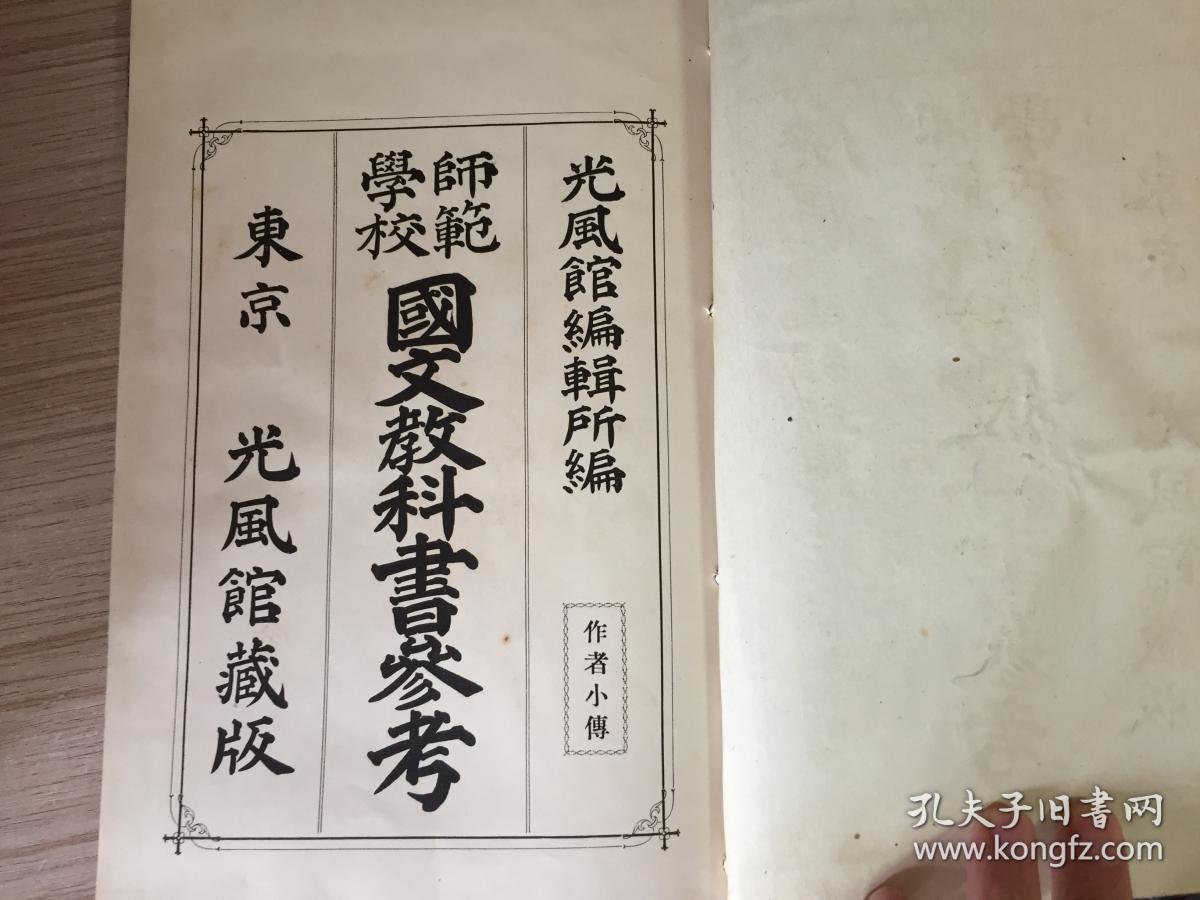 光風館編輯所編
作者小傳
師範
學校
國文教科書參考
東京 光風館藏版
孔夫子旧书网
www.kongfz.com